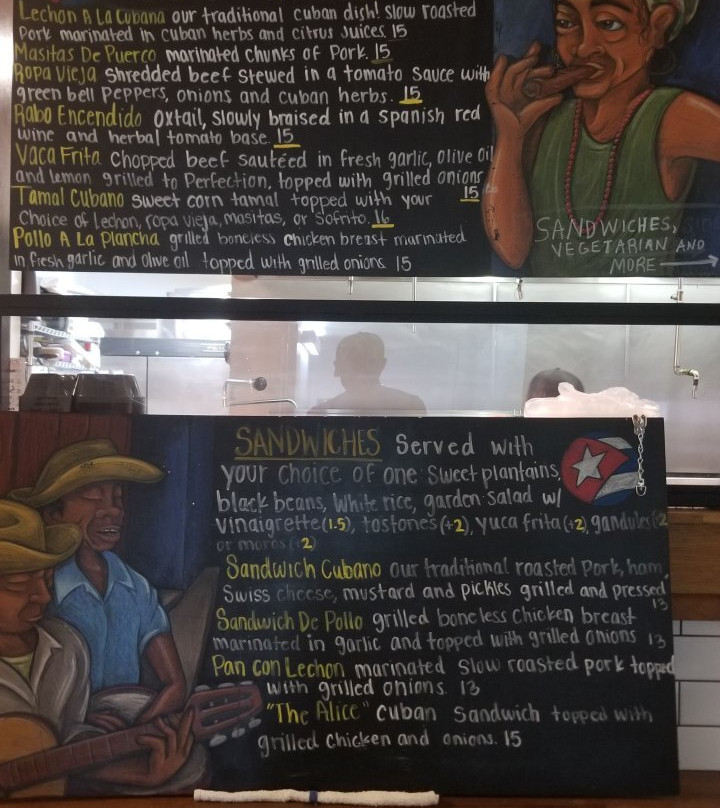 Lechon A La Cubana our traditional cuban dish! slow roasted
Pork marinated in cuban herbs and citrus juices. 15
Masitas De Puerco marinated chunks of Pork. 15
Ropa Vieja Shredded beef stewed in a tomato sauce with
green bell peppers, onions and cuban herbs. 15
Rabo Encendido Oxtail, slowly braised in a spanish red
wine and herbal tomato base. 15
Vaca Frita Chopped beef sautéed in fresh garlic, olive oil
and lemon grilled to Perfection, topped with grilled onions
15
Tamal Cubano sweet corn tamal topped with your
Choice of lechon, ropa vieja, masitas, or Sofrito. 16
Pollo A La Plancha grilled boneless chicken breast marinated
in fresh garlic and olive oil topped with grilled onions 15
SANDWICHES,
VEGETARIAN AND
MORE
SANDWICHES Served with
your choice of one sweet plantains,
black beans, White rice, garden salad w/
vinaigrette (1.5), tostones (+2), yuca frita (+2), gandules (+2
or moros (+2)
Sandwich Cubano our traditional roasted Pork, ham,
Swiss cheese, mustard and pickles grilled and pressed
13
Sandwich De Pollo grilled boneless Chicken breast
marinated in garlic and topped with grilled onions 13
Pan con Lechon marinated slow roasted pork topped
with grilled onions. 13
"The Alice" Cuban Sandwich topped with
grilled chicken and onions. 15